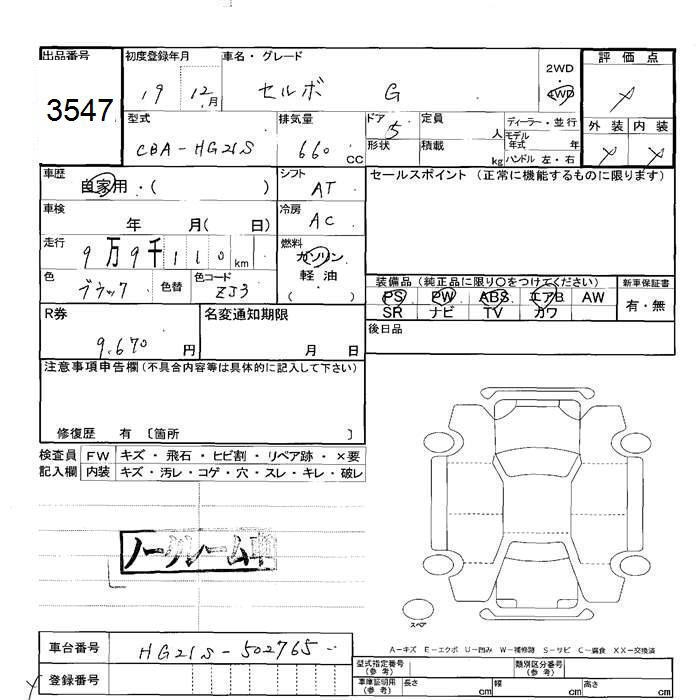 出品番号 初度登録年月 車名・グレード 2WD 評価点
3547 19 12月 セルボ G 4WD
型式 排気量 ドア 定員 ディーラー・並行 外装 内装
CBA-HG21S 660 CC 5 人 モデル年式 年
形状 積載 kg ハンドル 左・右
車歴 自家用・( ) シフト AT セールスポイント (正常に機能するものに限ります)
車検 年 月( 日) 冷房 AC
走行 9万9千110km 燃料 ガソリン
色 ブラック 色替 色コード ZJ3 軽油
( )
装備品 (純正品に限り○をつけてください) 新車保証書
PS PW ABS エアB AW 有・無
SR ナビ TV カワ
R券 名変通知期限 後日品
9.670 円 月 日
注意事項申告欄 (不具合内容等は具体的に記入して下さい)
修復歴 有 〔箇所 〕
検査員 FW キズ・飛石・ヒビ割・リペア跡・×要
記入欄 内装 キズ・汚レ・コゲ・穴・スレ・キレ・破レ
ノークレーム車
スペア
車台番号 HG21S-502765
A-キズ E-エクボ U-凹み W-補修跡 S-サビ C-腐食 XX-交換済
登録番号
型式指定番号 (参考) 類別区分番号 (参考)
車庫証明用 (参考) 長さ cm 幅 cm 高さ cm